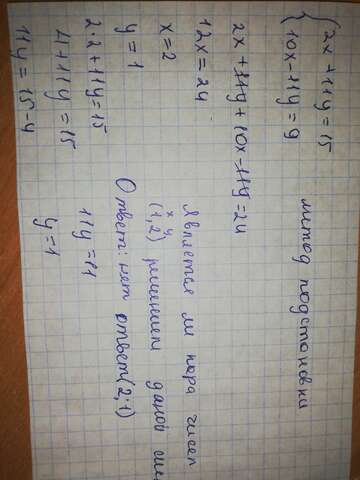 2x + 11y = 15
10x - 11y = 9
метод подстановки
2x + 11y + 10x - 11y = 24
12x = 24
x = 2
y = 1
2·2 + 11y = 15
4 + 11y = 15
11y = 15 - 4
Является ли пара чисел
x y
(1,2) решением даной сис
Ответ: нет ответ (2;1)
11y = 11
y = 1